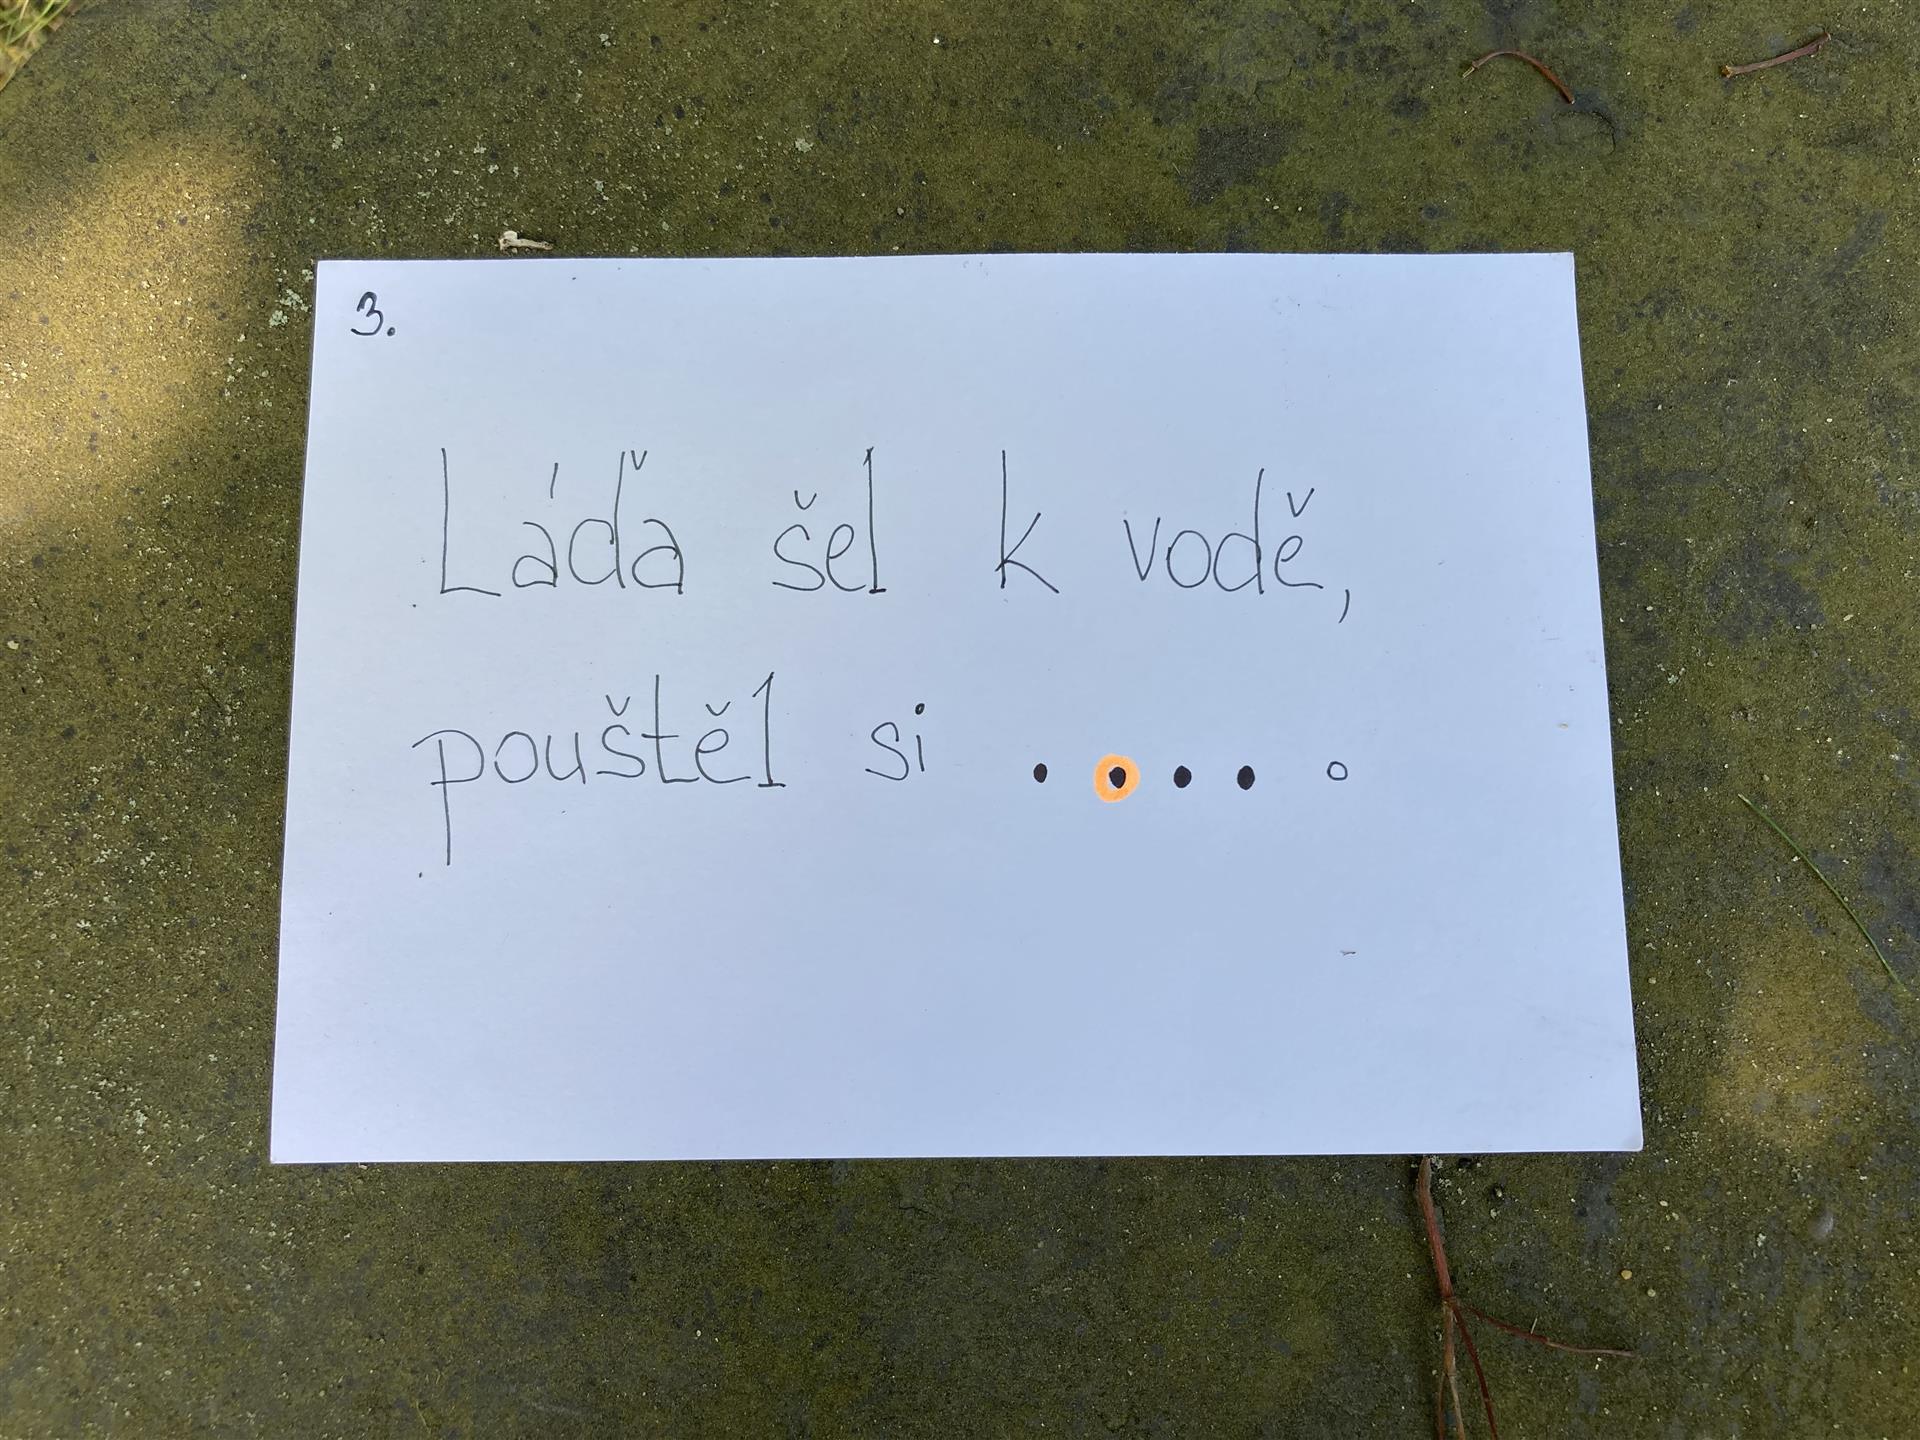 3.
Láďa šel k vodě,
pouštěl si . . . . .